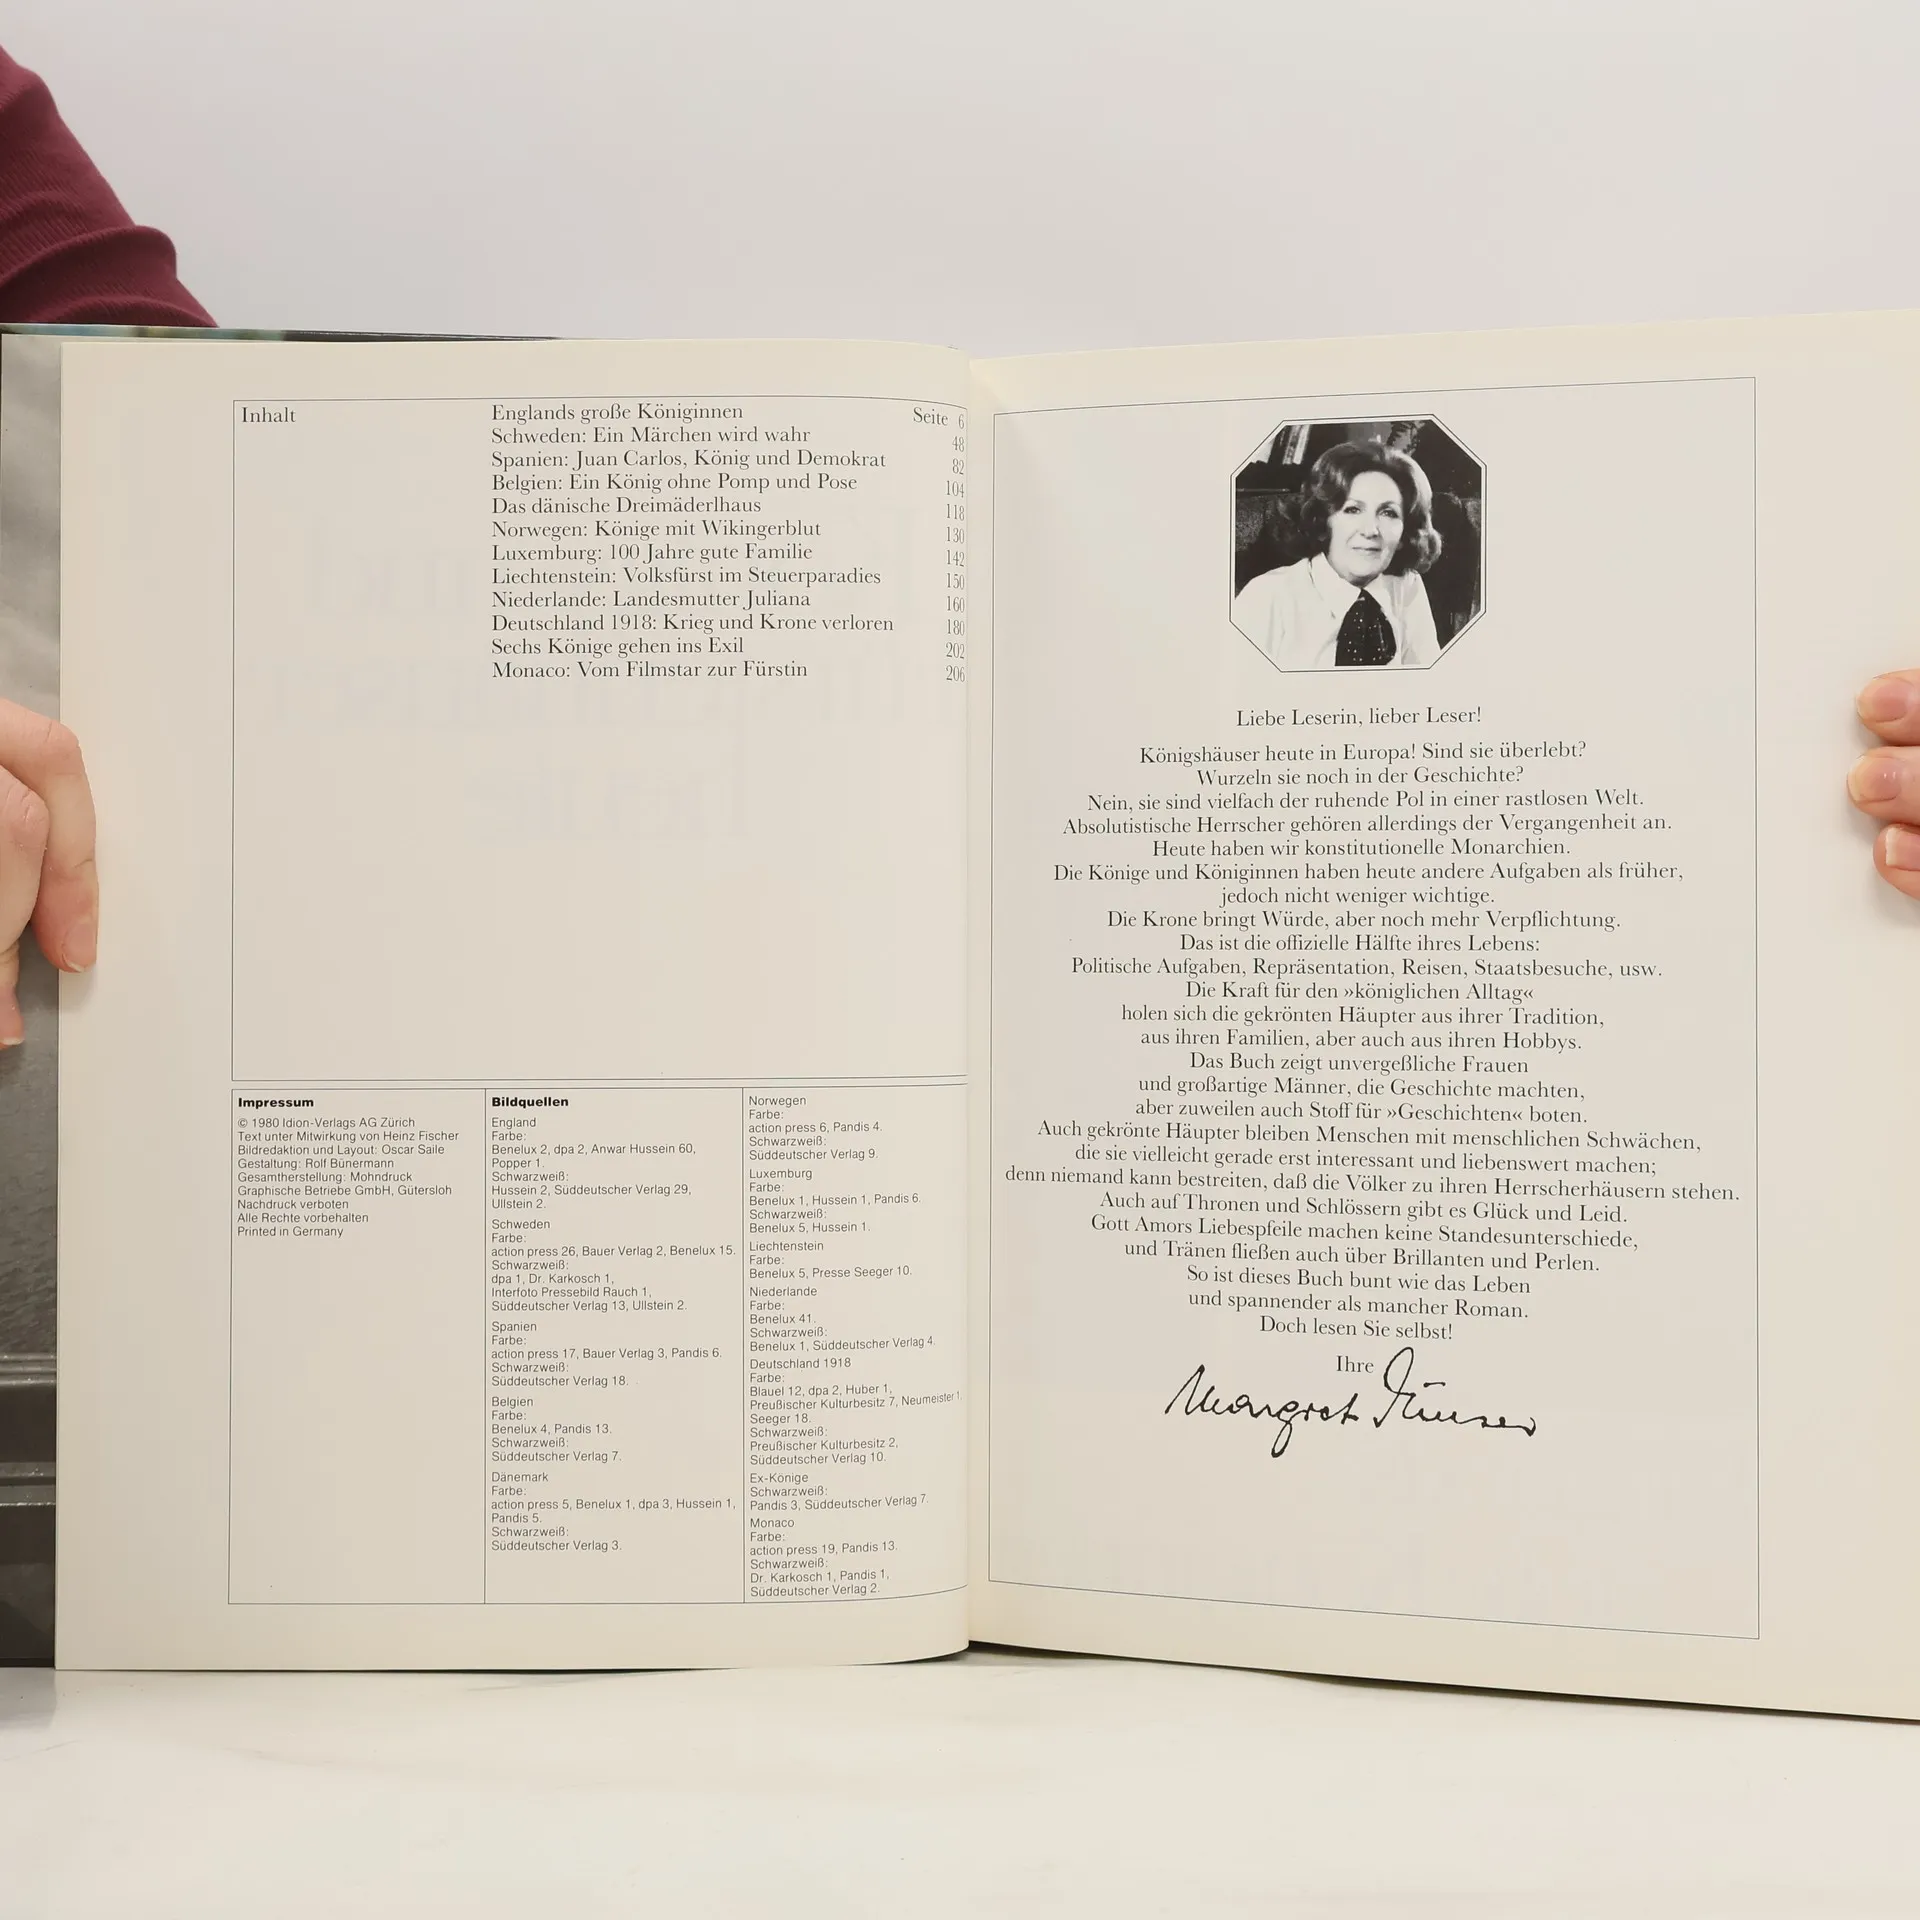 Inhalt
Englands große Königinnen Seite 6
Schweden: Ein Märchen wird wahr 48
Spanien: Juan Carlos, König und Demokrat 82
Belgien: Ein König ohne Pomp und Pose 104
Das dänische Dreimäderlhaus 118
Norwegen: Könige mit Wikingerblut 130
Luxemburg: 100 Jahre gute Familie 142
Liechtenstein: Volksfürst im Steuerparadies 150
Niederlande: Landesmutter Juliana 160
Deutschland 1918: Krieg und Krone verloren 180
Sechs Könige gehen ins Exil 202
Monaco: Vom Filmstar zur Fürstin 206
Impressum
© 1980 Idion-Verlags AG Zürich
Text unter Mitwirkung von Heinz Fischer
Bildredaktion und Layout: Oscar Saile
Gestaltung: Rolf Bünermann
Gesamtherstellung: Mohndruck
Graphische Betriebe GmbH, Gütersloh
Nachdruck verboten
Alle Rechte vorbehalten
Printed in Germany
Bildquellen
England
Farbe:
Benelux 2, dpa 2, Anwar Hussein 60,
Popper 1.
Schwarzweiß:
Hussein 2, Süddeutscher Verlag 29,
Ullstein 2.
Schweden
Farbe:
action press 26, Bauer Verlag 2, Benelux 15.
Schwarzweiß:
dpa 1, Dr. Karkosch 1,
Interfoto Pressebild Rauch 1,
Süddeutscher Verlag 13, Ullstein 2.
Spanien
Farbe:
action press 17, Bauer Verlag 3, Pandis 6.
Schwarzweiß:
Süddeutscher Verlag 18.
Belgien
Farbe:
Benelux 4, Pandis 13.
Schwarzweiß:
Süddeutscher Verlag 7.
Dänemark
Farbe:
action press 5, Benelux 1, dpa 3, Hussein 1,
Pandis 5.
Schwarzweiß:
Süddeutscher Verlag 3.
Norwegen
Farbe:
action press 6, Pandis 4.
Schwarzweiß:
Süddeutscher Verlag 9.
Luxemburg
Farbe:
Benelux 1, Hussein 1, Pandis 6.
Schwarzweiß:
Benelux 5, Hussein 1.
Liechtenstein
Farbe:
Benelux 5, Presse Seeger 10.
Niederlande
Farbe:
Benelux 41.
Schwarzweiß:
Benelux 1, Süddeutscher Verlag 4.
Deutschland 1918
Farbe:
Blauel 12, dpa 2, Huber 1,
Preußischer Kulturbesitz 7, Neumeister 1,
Seeger 18.
Schwarzweiß:
Preußischer Kulturbesitz 2,
Süddeutscher Verlag 10.
Ex-Könige
Schwarzweiß:
Pandis 3, Süddeutscher Verlag 7.
Monaco
Farbe:
action press 19, Pandis 13.
Schwarzweiß:
Dr. Karkosch 1, Pandis 1,
Süddeutscher Verlag 2.
Liebe Leserin, lieber Leser!
Königshäuser heute in Europa! Sind sie überlebt?
Wurzeln sie noch in der Geschichte?
Nein, sie sind vielfach der ruhende Pol in einer rastlosen Welt.
Absolutistische Herrscher gehören allerdings der Vergangenheit an.
Heute haben wir konstitutionelle Monarchien.
Die Könige und Königinnen haben heute andere Aufgaben als früher,
jedoch nicht weniger wichtige.
Die Krone bringt Würde, aber noch mehr Verpflichtung.
Das ist die offizielle Hälfte ihres Lebens:
Politische Aufgaben, Repräsentation, Reisen, Staatsbesuche, usw.
Die Kraft für den »königlichen Alltag«
holen sich die gekrönten Häupter aus ihrer Tradition,
aus ihren Familien, aber auch aus ihren Hobbys.
Das Buch zeigt unvergeßliche Frauen
und großartige Männer, die Geschichte machten,
aber zuweilen auch Stoff für »Geschichten« boten.
Auch gekrönte Häupter bleiben Menschen mit menschlichen Schwächen,
die sie vielleicht gerade erst interessant und liebenswert machen;
denn niemand kann bestreiten, daß die Völker zu ihren Herrscherhäusern stehen.
Auch auf Thronen und Schlössern gibt es Glück und Leid.
Gott Amors Liebespfeile machen keine Standesunterschiede,
und Tränen fließen auch über Brillanten und Perlen.
So ist dieses Buch bunt wie das Leben
und spannender als mancher Roman.
Doch lesen Sie selbst!
Ihre
Margret